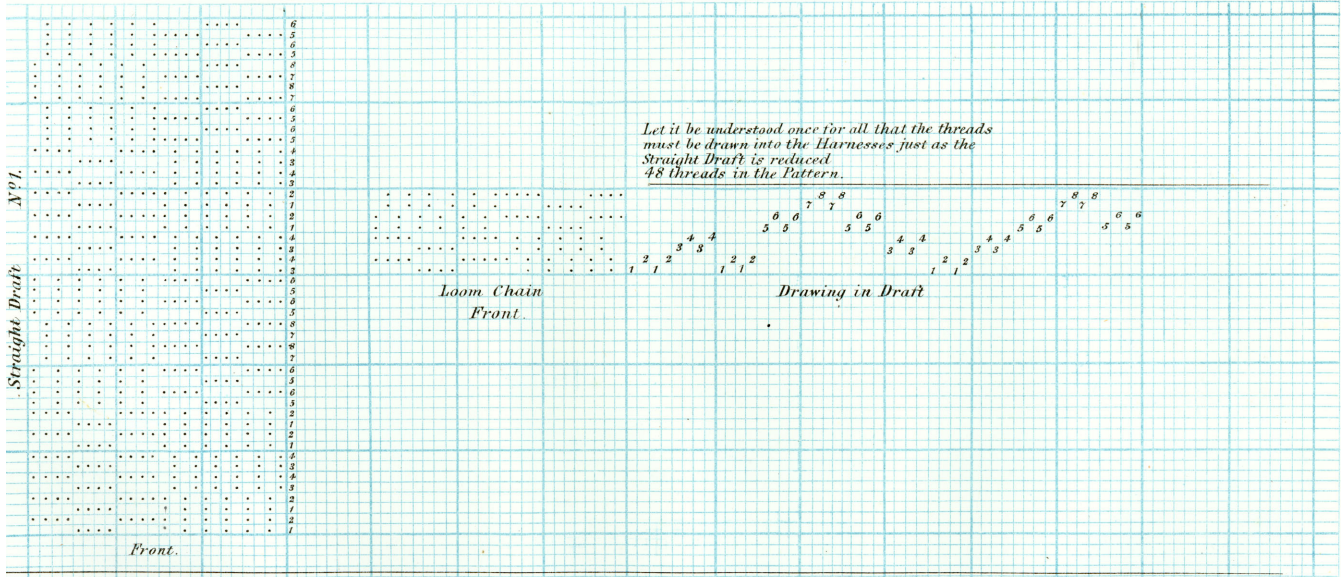 Nº1.
Straight Draft
6
5
6
5
8
7
8
7
6
5
6
5
4
3
4
3
2
1
2
1
4
3
4
3
6
5
6
5
8
7
8
7
6
5
6
5
2
1
2
1
4
3
4
3
2
1
2
1
Front.
Let it be understood once for all that the threads
must be drawn into the Harnesses just as the
Straight Draft is reduced
48 threads in the Pattern.
1 2 1 2 3 4 3 4 1 2 1 2 5 6 5 6 7 8 7 8 5 6 5 6 3 4 3 4 1 2 1 2 3 4 3 4 5 6 5 6 7 8 7 8 5 6 5 6
Loom Chain
Front.
Drawing in Draft